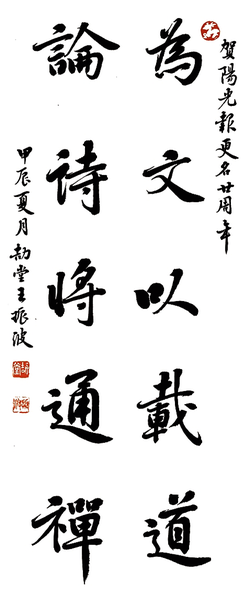 賀陽光報更名廿周年
為文以載道
論詩將通禪
甲辰夏月劼堂王振波